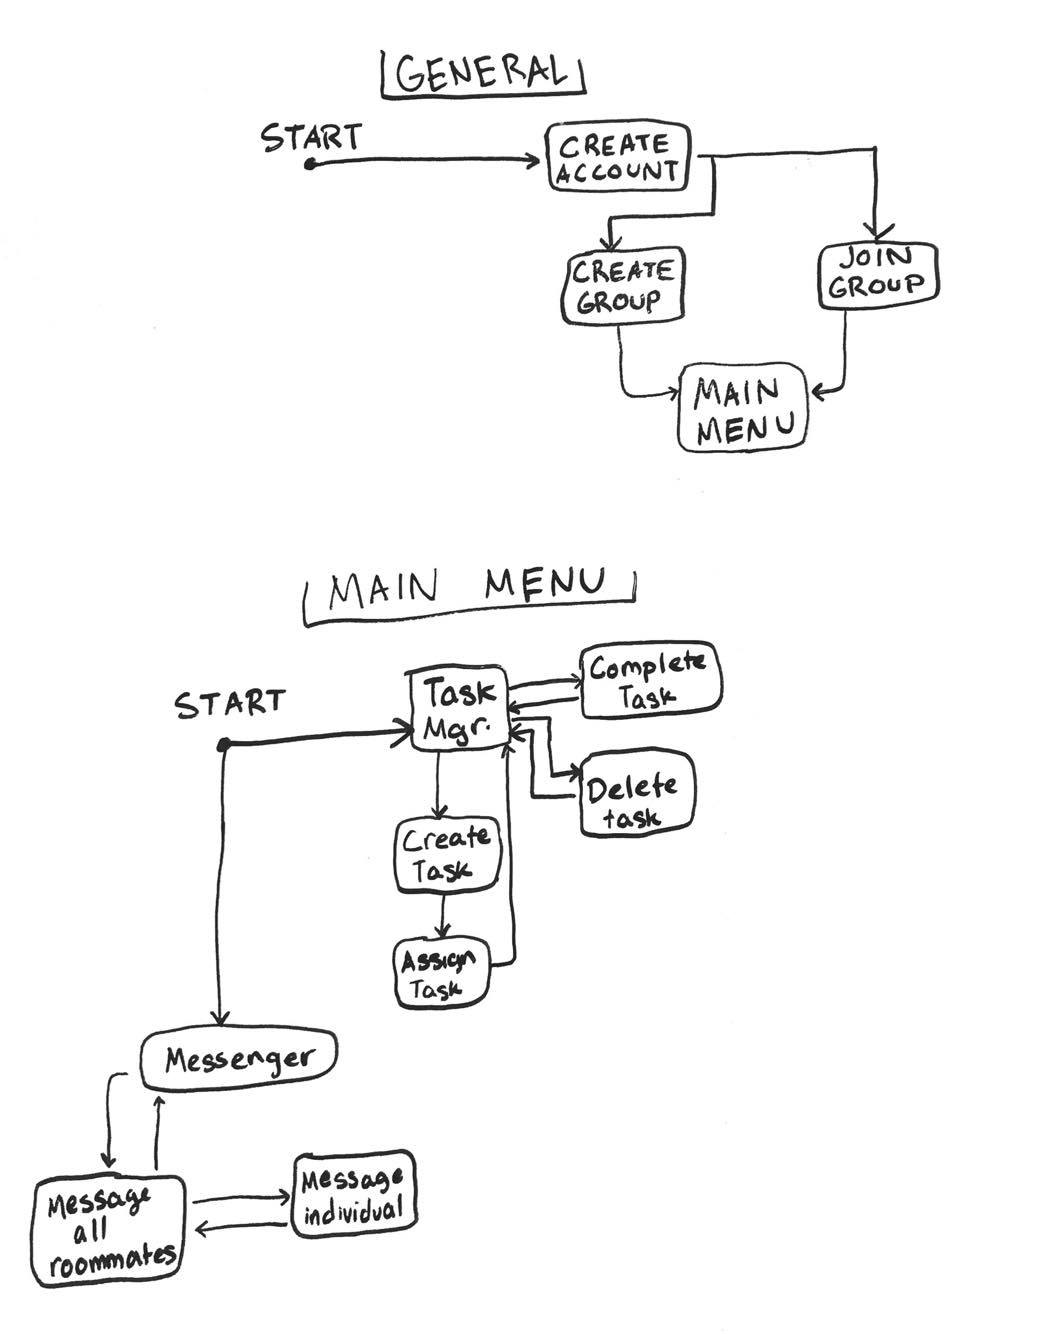 GENERAL
START
CREATE
ACCOUNT
CREATE
GROUP
JOIN
GROUP
MAIN
MENU
MAIN MENU
START
Task
Mgr.
Complete
Task
Delete
task
Create
Task
Assign
Task
Messenger
Message
all
roommates
Message
individual